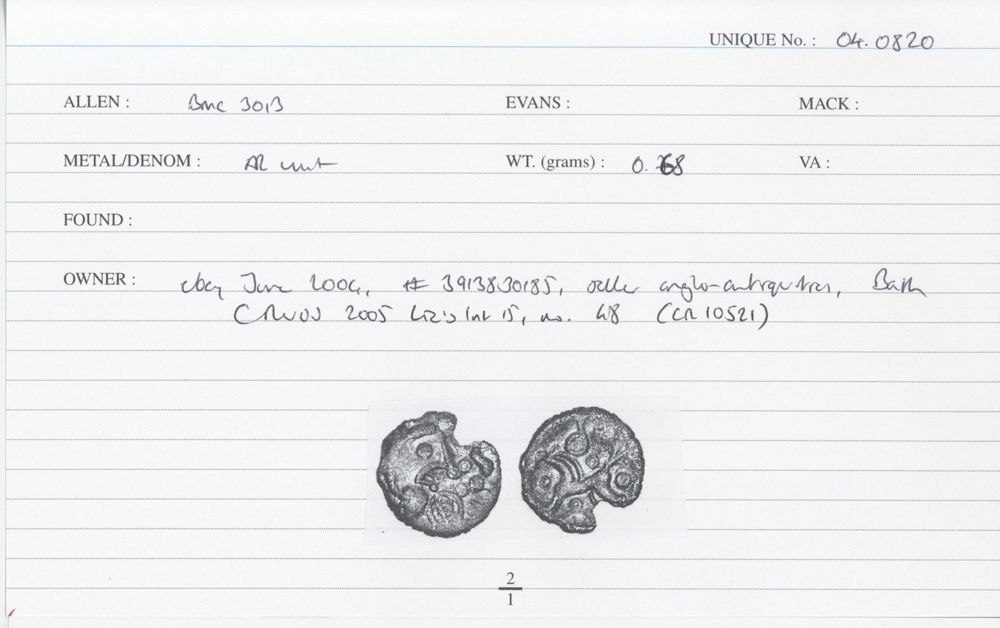 UNIQUE No. : 04.0820
ALLEN : BMC 3013 EVANS : MACK :
METAL/DENOM : AR unit WT. (grams) : 0.68 VA :
FOUND :
OWNER : ebay June 2004, # 3913830185, seller anglo-antiquities, Bath
2005 Liz's list 15, no. 48 (CR 10521)
2
1